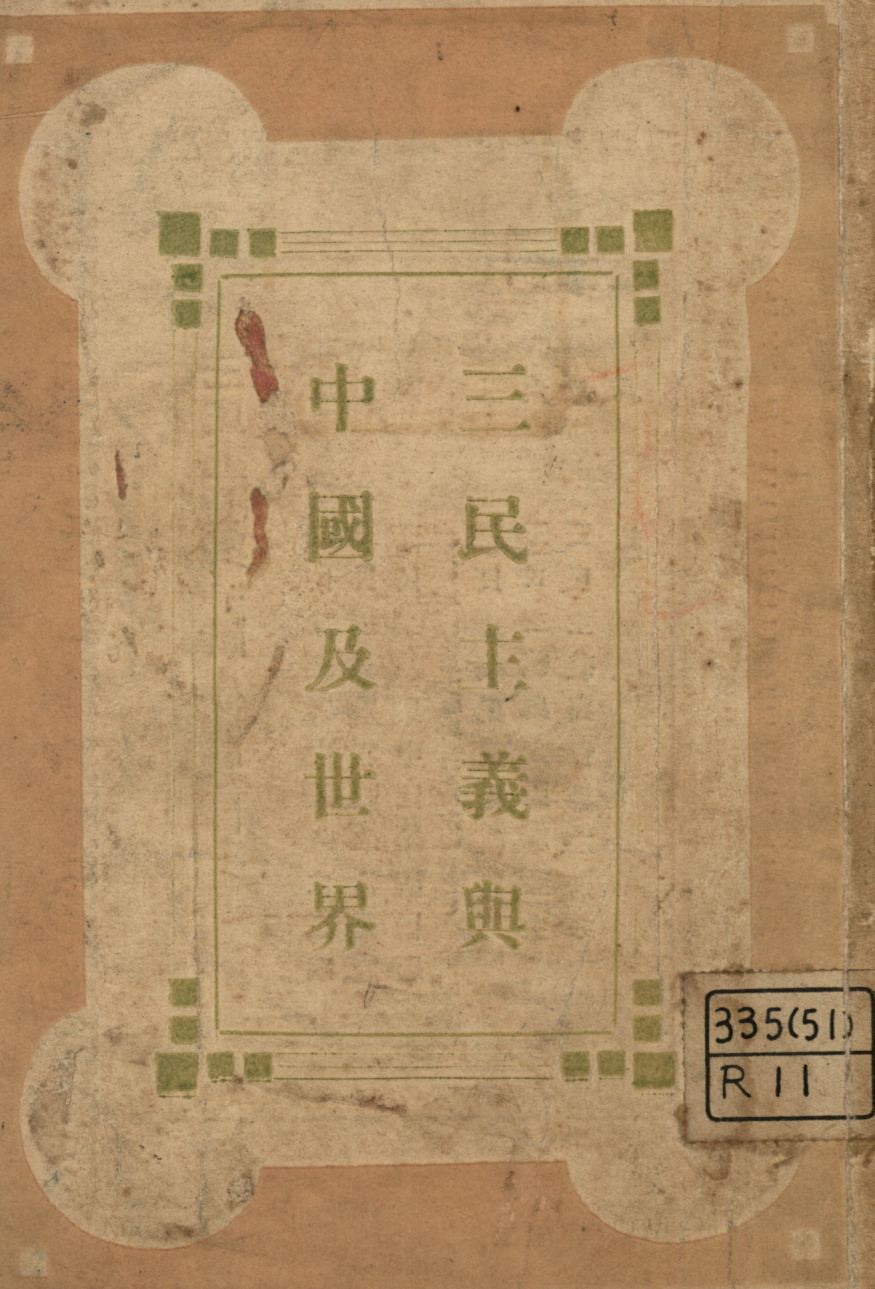 三民主義與
中國及世界
335(51)
R 11